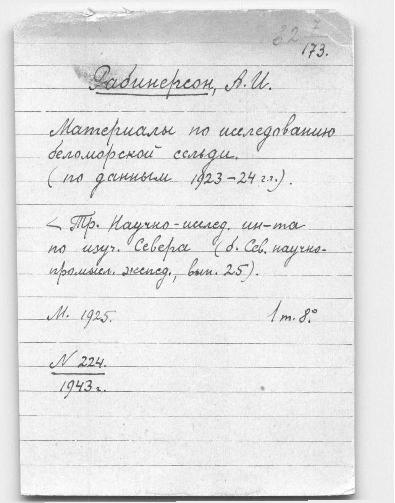 173.
Рабинерсон, А.И.
Материалы по исследованию
беломорской сельди.
(по данным 1923–24 г.г.).
< Тр. Научно-исслед. ин-та
по изуч. Севера (б. Сев. научно-
промысл. экспед., вып. 25).
М. 1925. 1 т. 8°.
N 224.
1943 г.